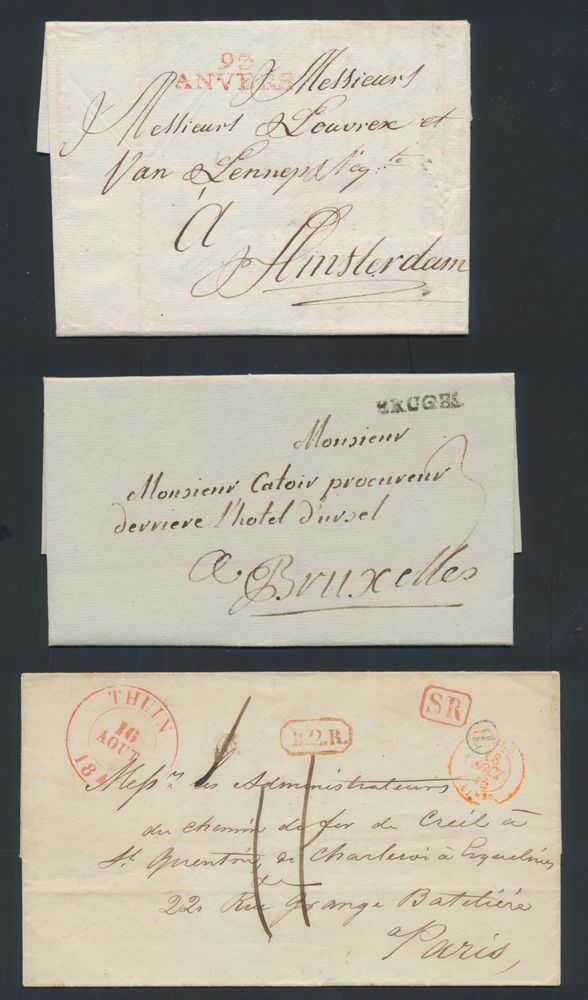 93
ANVERS
Messieurs
Messieurs Louvrex et
Van Lennep & Neg.te
à
Amsterdam
BRUGES
Monsieur
Monsieur Catoir procureur
derriere l'hotel d'ursel
a Bruxelles
3
THUIN
16
AOUT
184
B.2.R.
SR
Mess.rs les Administrateurs
du chemin de fer de Creil à
St Quentin, de Charleroi à Erquelines
22 Rue Grange Batelière
a Paris,